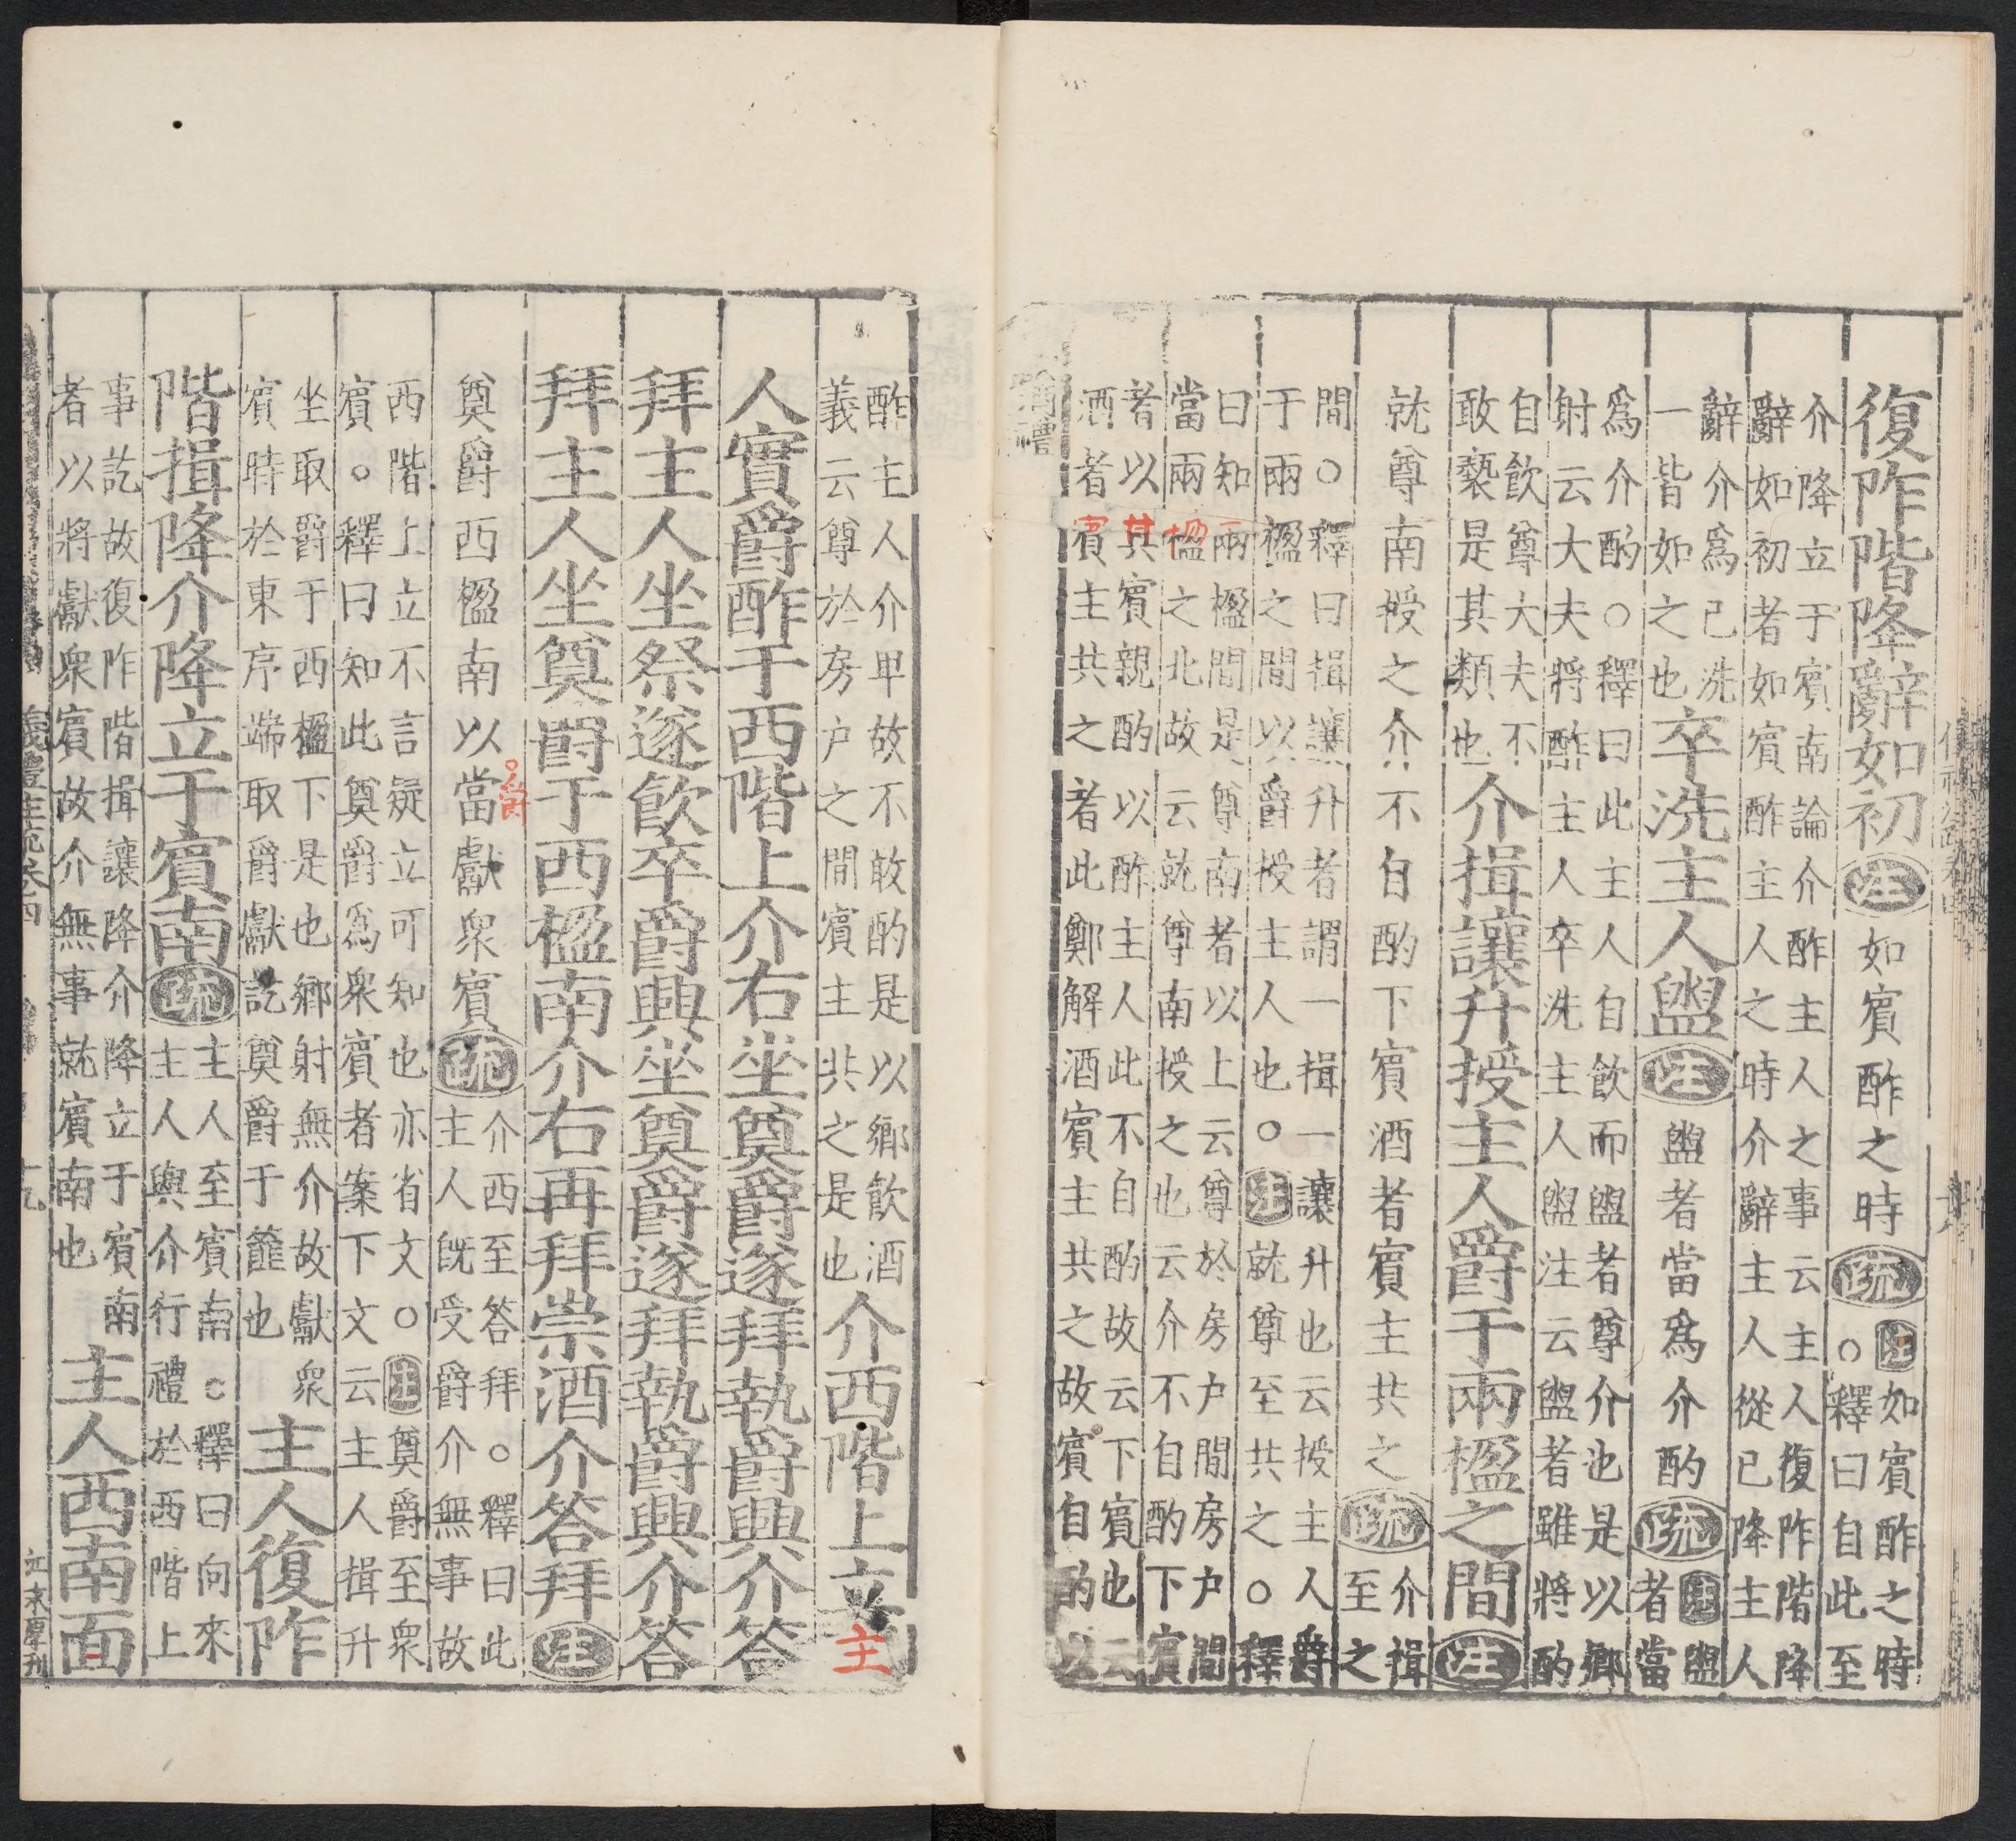 復阼階降辭如初注如賓酢之時疏
注如賓酢之時
〇釋曰自此至
介降立于賓南論介酢主人之事云主人復阼階降
辭如初者如賓酢主人之時介辭主人從已降主人
辭介爲已洗
一皆如之也
卒洗主人盥注盥者當爲介酌疏
注盥
者當
爲介酌〇釋曰此主人自飲而盥者尊介也是以鄉
射云大夫將酢主人卒洗主人盥注云盥者雖將酌
自飲尊大夫不
敢褻是其類也
介揖讓升授主人爵于兩楹之間注
就尊南授之介不自酌下賓酒者賓主共之疏
介揖
至之
間〇釋曰揖讓升者謂一揖一讓升也云授主人爵
于兩楹之間以爵授主人也〇注就尊至共之〇釋
曰知兩楹間是尊南者以上云尊於房户間房户間
當兩楹之北故云就尊南授之也云介不自酌下賓
者以其賓親酌以酢主人此不自酌故云下賓也云
酒者賓主共之者此鄭解酒賓主共之故賓自酌以
酢主人介卑故不敢酌是以鄉飲酒
義云尊於房户之間賓主共之是也
介西階上立主
人實爵酢于西階上介右坐奠爵遂拜執爵興介答
拜主人坐祭遂飲卒爵興坐奠爵遂拜執爵興介答
拜主人坐奠爵于西楹南介右再拜崇酒介答拜注
奠爵西楹南以當獻衆賓疏
〇爵
介西至答拜〇釋曰此
主人旣受爵介無事故
西階上立不言疑立可知也亦省文〇注奠爵至衆
賓〇釋曰知此奠爵爲衆賓者案下文云主人揖升
坐取爵于西楹下是也鄉射無介故獻衆
賓時於東序端取爵獻訖奠爵于篚也
主人復阼
階揖降介降立于賓南疏
主人至賓南〇釋曰向來
主人與介行禮於西階上
事訖故復阼階揖讓降介降立于賓南
者以將獻衆賓故介無事就賓南也
主人西南面
儀禮注疏卷四
十九
江末厚刊